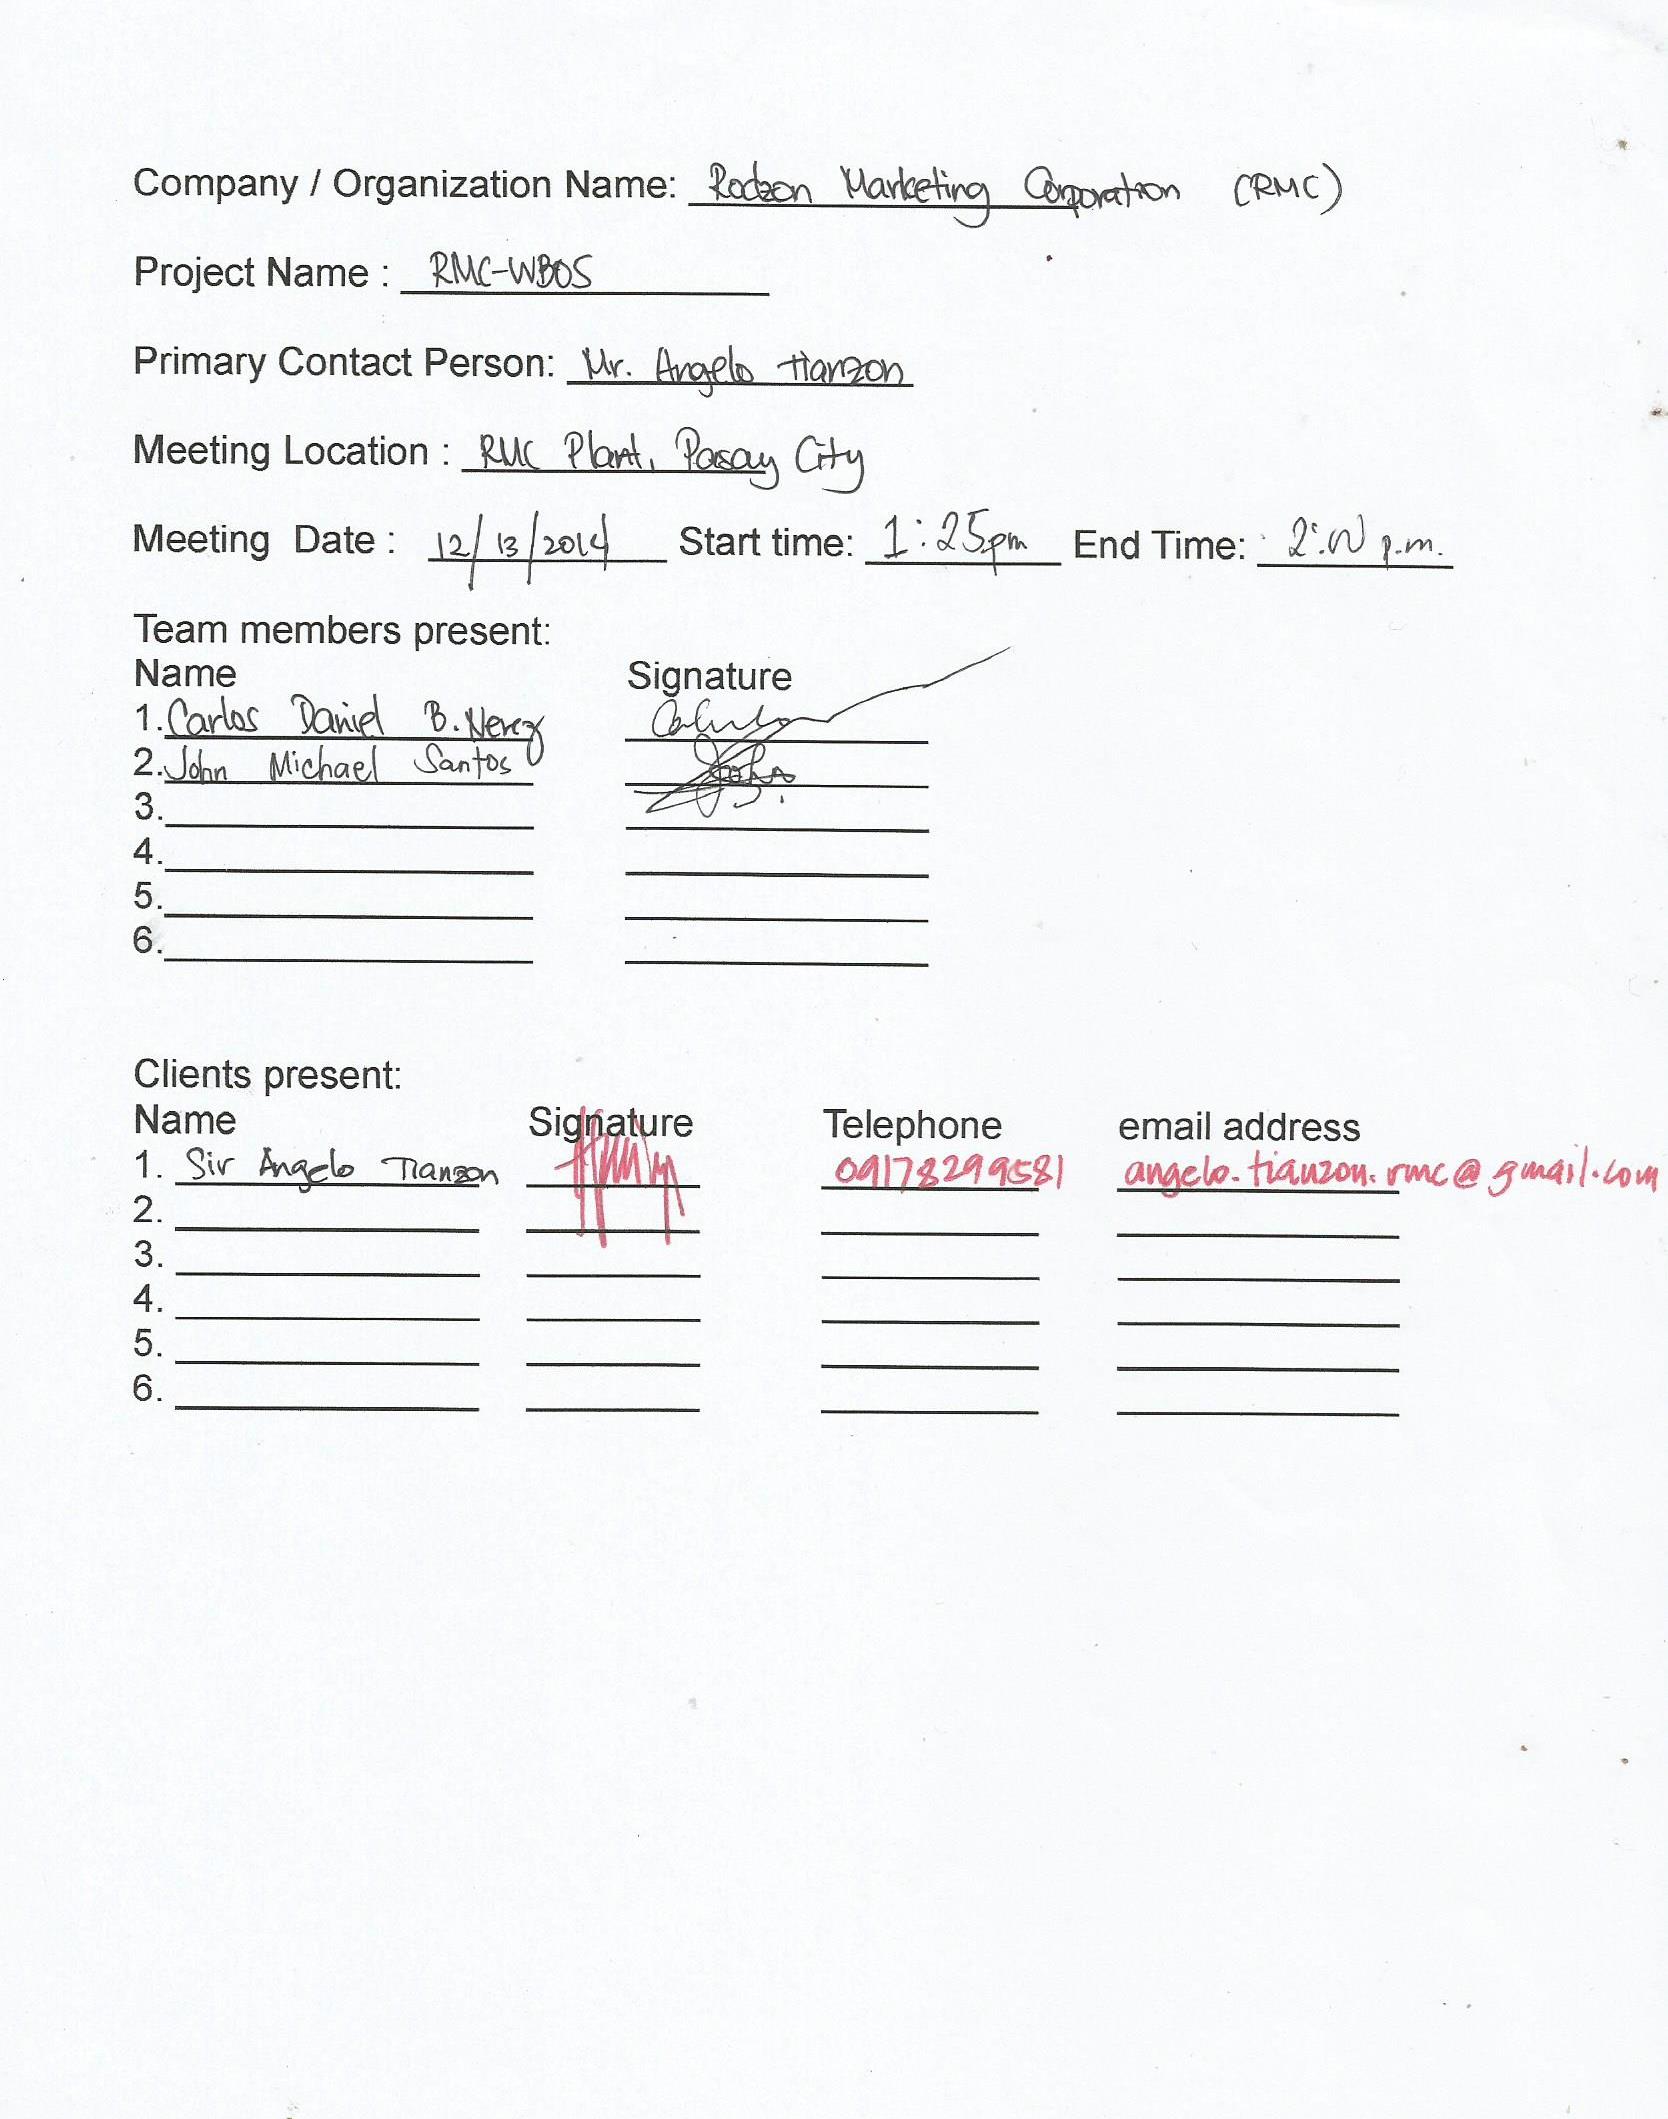 Company / Organization Name: Rodzon Marketing Corporation (RMC)
Project Name : RMC-WBOS
Primary Contact Person: Mr. Angelo Tianzon
Meeting Location : RMC Plant, Pasay City
Meeting Date : 12/13/2014 Start time: 1:25pm End Time: 2:00 p.m.
Team members present:
Name Signature
1. Carlos Daniel B. Nerez
2. John Michael Santos
3.
4.
5.
6.
Clients present:
Name Signature Telephone email address
1. Sir Angelo Tianzon 09178299581 angelo.tianzon.rmc@gmail.com
2.
3.
4.
5.
6.